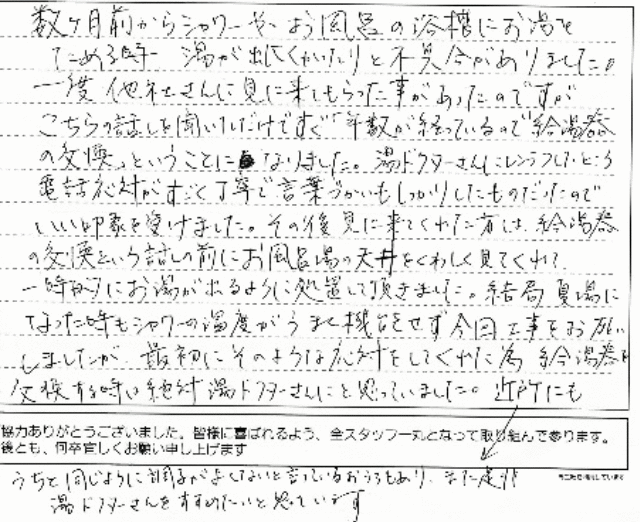 数ヶ月前からシャワーや、お風呂の浴槽にお湯を
ためる時 湯が出にくかったりと不具合がありました。
一度他社さんに見に来てもらった事があったのですが
こちらの話しを聞いただけですぐ「年数が経っているので給湯器
の交換」ということになりました。湯ドクターさんにTELしたところ
電話応対がすごく丁寧で言葉づかいもしっかりしたものだったので
いい印象を受けました。その後見に来てくれた方は、給湯器
の交換という話しの前にお風呂場の天井をくわしく見てくれて
一時的にお湯が出るように処置して頂きました。結局夏場に
なった時もシャワーの温度がうまく機能せず今回工事をお願い
しましたが 最初にそのような応対をしてくれた為 給湯器を
交換する時は絶対湯ドクターさんにと思っていました。近所にも
協力ありがとうございました。皆様に喜ばれるよう、全スタッフ一丸となって取り組んで参ります。
後とも、何卒宜しくお願い申し上げます
うちと同じように調子がよくないと言っているおうちもあり、また是非
湯ドクターさんをすすめたいと思っています